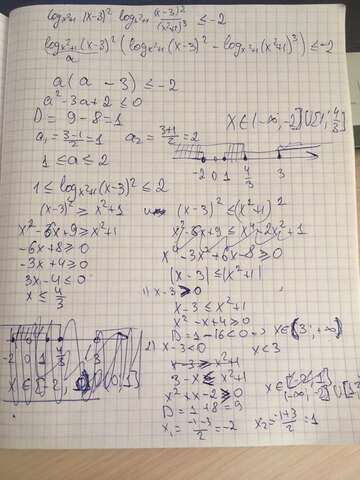 log_{x²+1} (x-3)² log_{x²+1} (x-3)²/(x²+1)³ ≤ -2
log_{x²+1} (x-3)² (log_{x²+1} (x-3)² - log_{x²+1} (x²+1)³) ≤ -2
a
a(a - 3) ≤ -2
a² - 3a + 2 ≤ 0
D = 9 - 8 = 1
a₁ = 3-1/2 = 1   a₂ = 3+1/2 = 2
x∈(-∞, -2]U[1; 4/3]
1 ≤ a ≤ 2
-2 0 1 4/3 3
1 ≤ log_{x²+1} (x-3)² ≤ 2
(x-3)² ≥ x²+1   и   (x-3)² ≤ (x²+1)²
x² - 6x + 9 ≥ x²+1   x² - 6x + 9 ≤ x⁴ + 2x² + 1
-6x + 8 ≥ 0   x⁴ - 3x² + 6x - 8 ≥ 0
-3x + 4 ≥ 0   |x-3| ≤ |x²+1|
3x - 4 ≤ 0   1) x-3 ≥ 0
x ≤ 4/3   x-3 ≤ x²+1
x² - x + 4 ≥ 0
D = 1 - 16 < 0 x∈(3; +∞)
2) x-3 < 0   x < 3
-2 0 1 4/3 3
x-3 ≥ x²+1
3-x ≤ x²+1
x² + x - 2 ≥ 0
D = 1 + 8 = 9
x₁ = -1-3/2 = -2   x₂ = -1+3/2 = 1
(-∞, -2]U[1;